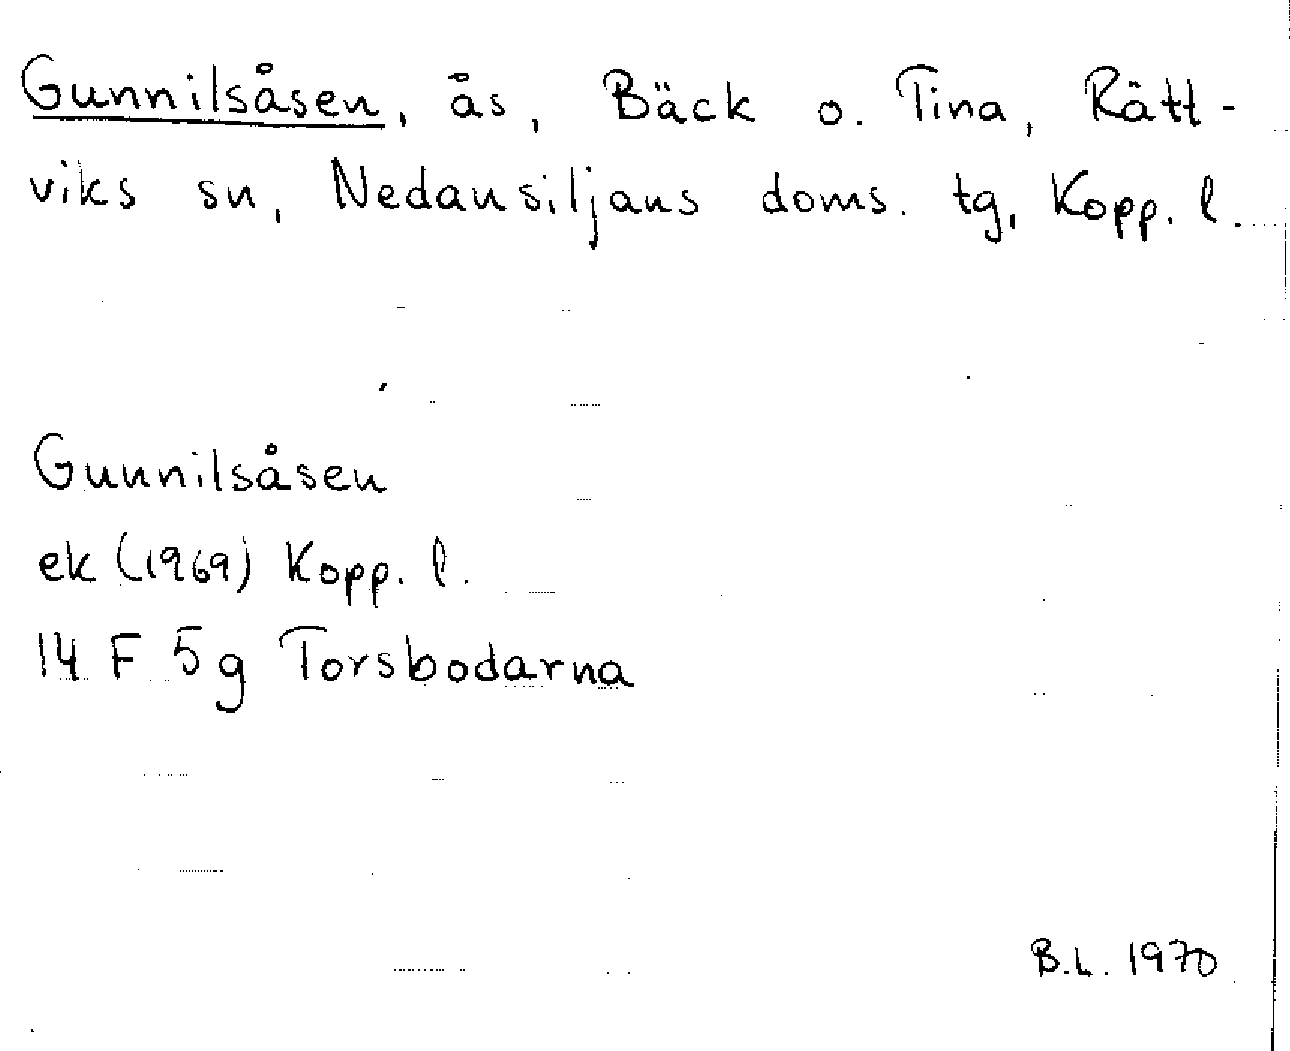 Gunnilsåsen, ås, Bäck o. Tina, Rätt-
viks sn, Nedansiljans doms. tg, Kopp. l.
Gunnilsåsen
ek (1969) Kopp. l.
14 F 5g Torsbodarna
B.L. 1970